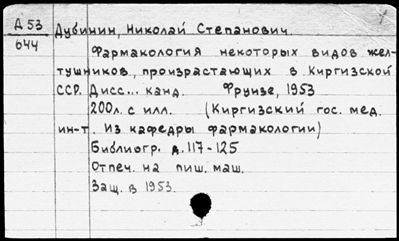 Д 53
644
Дубинин, Николай Степанович.
Фармакология некоторых видов жел-
тушников, произрастающих в Киргизской
ССР. Дисс... канд. Фрунзе, 1953
200л. с илл. (Киргизский гос. мед.
ин-т. Из кафедры фармакологии)
Библиогр. л. 117-125
Отпеч. на пиш. маш.
Защ. в 1953.